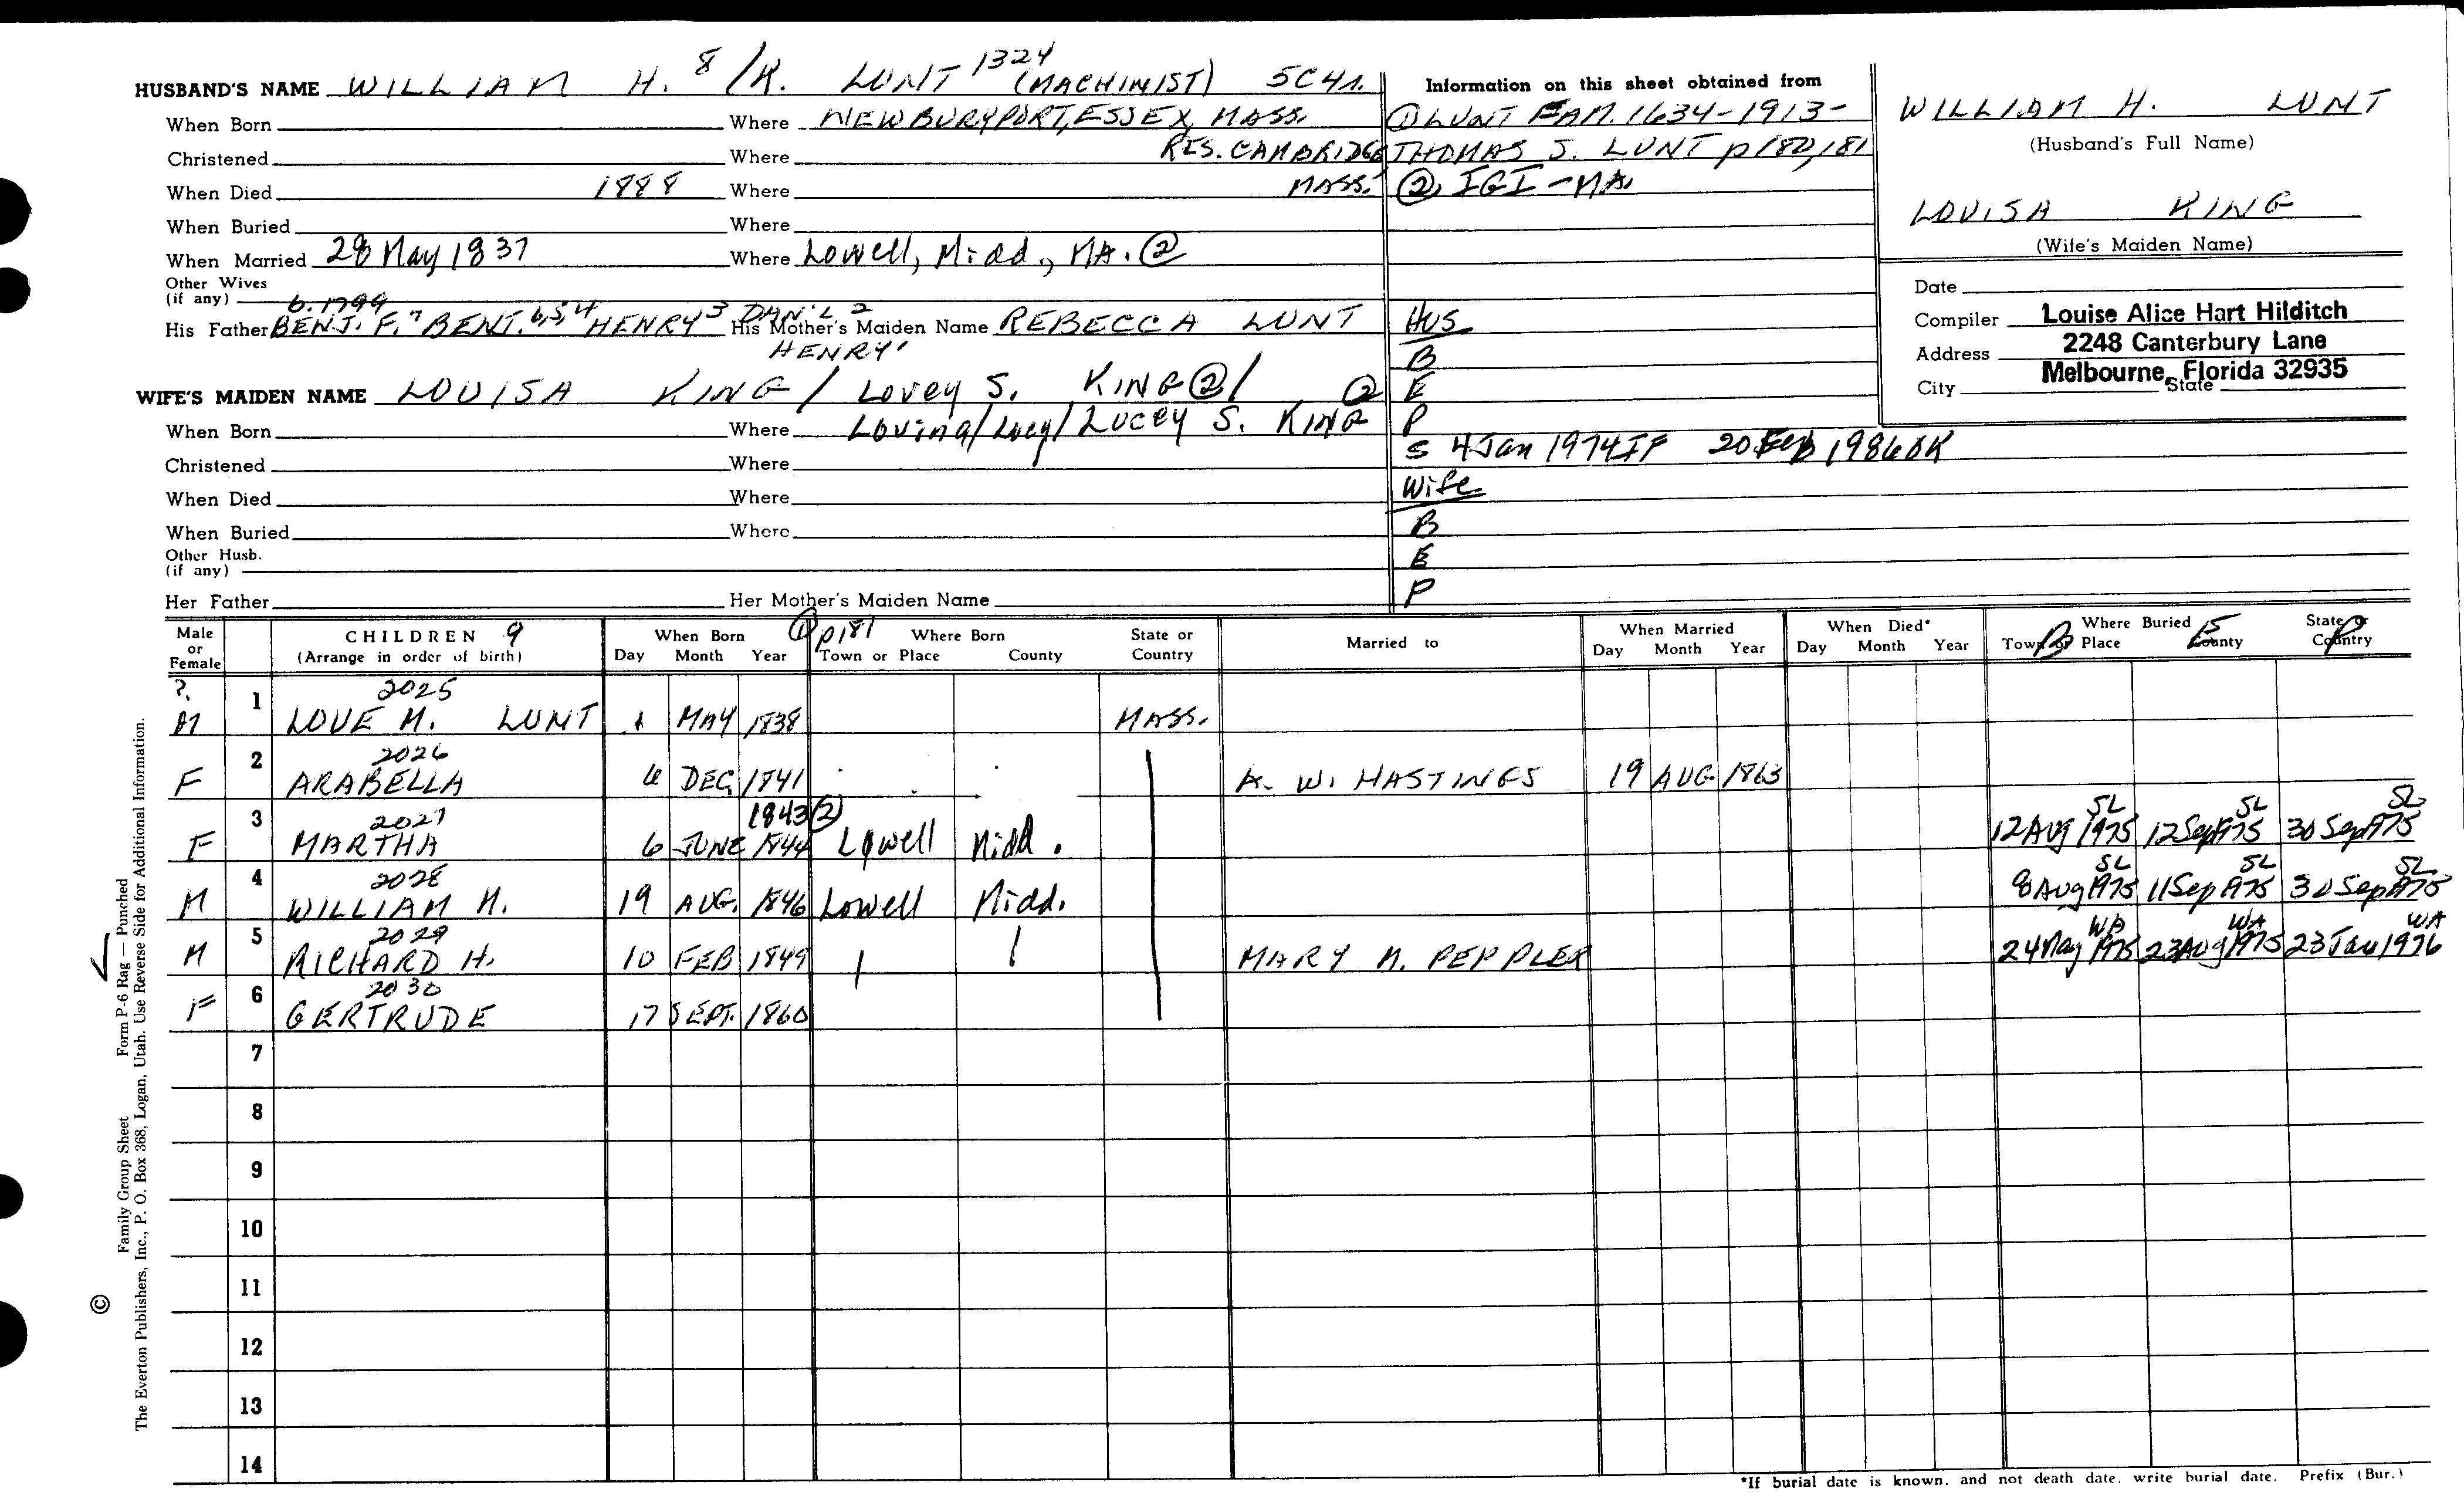 HUSBAND'S NAME WILLIAM H. 8 /R. LUNT 1324 (MACHINIST) 5C4
When Born Where NEWBURYPORT, ESSEX, MASS.
Christened Where RES. CAMBRIDGE
When Died 1888 Where MASS.
When Buried Where
When Married 28 May 1837 Where Lowell, Midd., MA. ②
Other Wives
(if any) b. 1799
His Father BENJ. F. 7 BENJ. 6,5,4 HENRY 3 DAN'L 2 His Mother's Maiden Name REBECCA LUNT
HENRY 1
WIFE'S MAIDEN NAME LOUISA KING / Lovey S. KING ② / ②
When Born Where Loving / Lucy / Lucey S. KING
Christened Where
When Died Where
When Buried Where
Other Husb.
(if any)
Her Father Her Mother's Maiden Name
Information on this sheet obtained from
① LUNT FAM. 1634-1913-
THOMAS S. LUNT p 180, 181
② IGI - MA.
HUS
B
E
P
S 4 Jan 1974 IF 20 Feb 1986 OK
Wife
B
E
P
WILLIAM H. LUNT
(Husband's Full Name)
LOUISA KING
(Wife's Maiden Name)
Date
Compiler Louise Alice Hart Hilditch
Address 2248 Canterbury Lane
Melbourne, Florida 32935
City State
Male or Female CHILDREN 9 (Arrange in order of birth) When Born Day Month Year ① p181 Where Born Town or Place County State or Country Married to When Married Day Month Year When Died* Day Month Year Where Buried Town or Place County State or Country B E P
?. 1 2025
M LOVE M. LUNT 1 MAY 1838 MASS.
2 2026
F ARABELLA 6 DEC. 1841 A. W. HASTINGS 19 AUG. 1863
1843 ②
3 2027 SL SL SL
F MARTHA 6 JUNE 1844 Lowell Midd. 12 Aug 1975 12 Sep 1975 30 Sep 1975
4 2028 SL SL SL
M WILLIAM H. 19 AUG. 1846 Lowell Midd. 8 Aug 1975 11 Sep 1975 30 Sep 1975
5 2029 WA WA WA
M RICHARD H. 10 FEB 1849 MARY M. PEPPLER 24 May 1975 23 Aug 1975 23 Jan 1976
6 2030
F GERTRUDE 17 SEPT. 1860
7
8
9
10
11
12
13
14
*If burial date is known, and not death date, write burial date. Prefix (Bur.)
© Family Group Sheet Form P-6 Rag — Punched
The Everton Publishers, Inc., P. O. Box 368, Logan, Utah. Use Reverse Side for Additional Information.